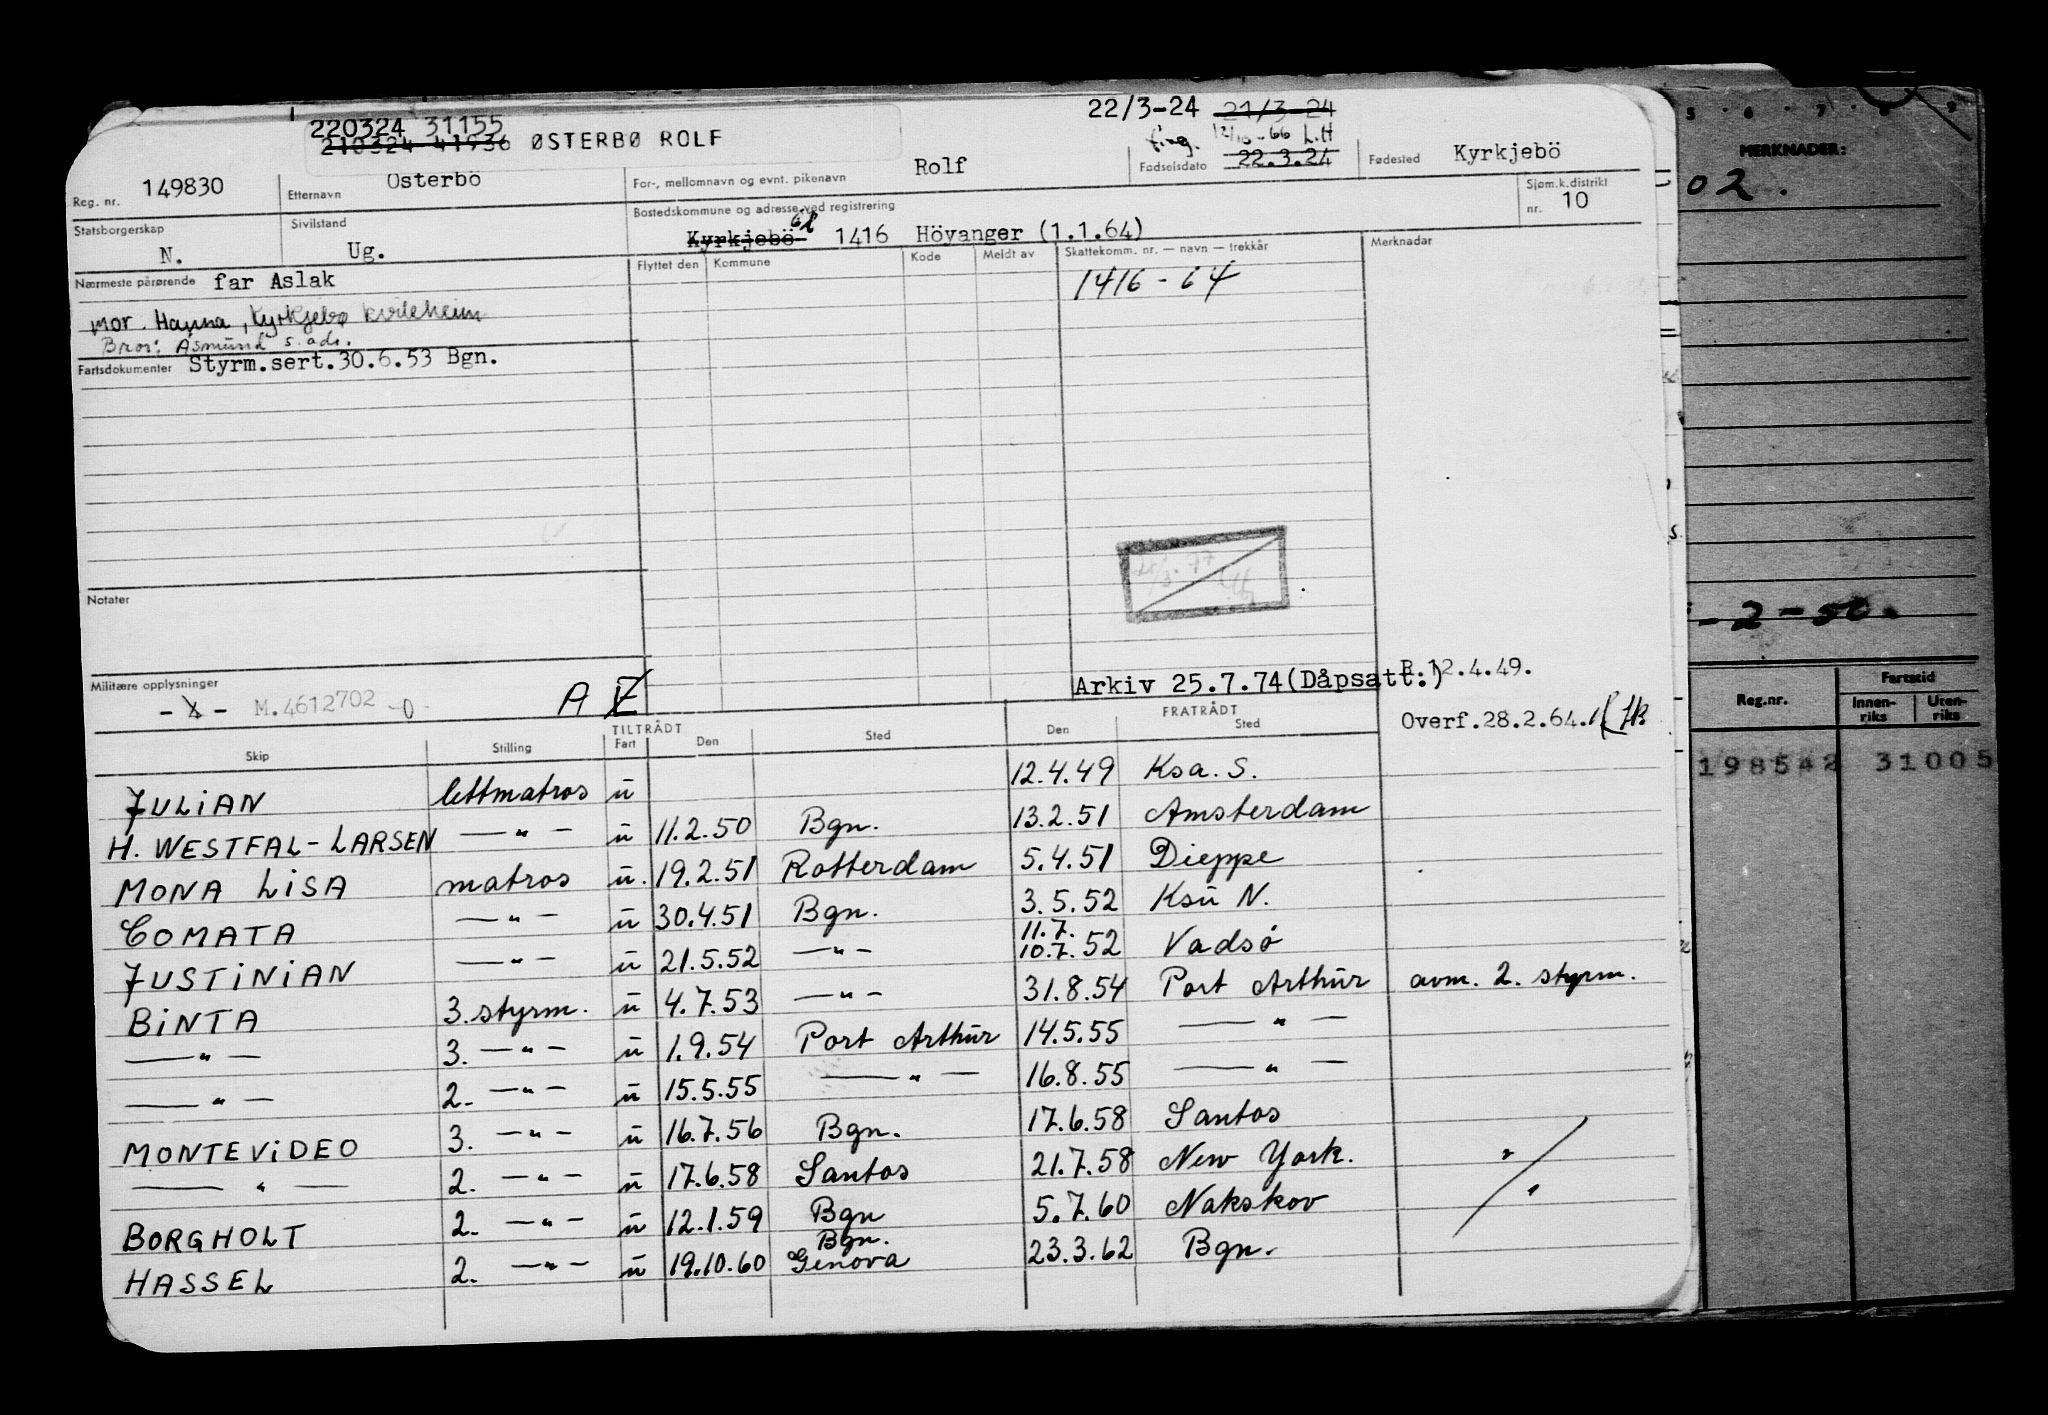 22/3-24 21/3-24
220324 31155
210324 41936 ØSTERBØ ROLF
12/10-66 L.H
Reg. nr. 149830 Etternavn Österbö For-, mellomnavn og evnt. pikenavn Rolf Fødselsdato 22.3.24 Fødested Kyrkjebö
Statsborgerskap N. Sivilstand Ug. Bostedskommune og adresse ved registrering Kyrkjebö 1416 Höyanger (1.1.64) Sjøm.k.distrikt nr. 10
Nærmeste pårørende far Aslak
mor. Hanna, Kyrkjebø kvileheim
Bror: Åsmund s. adr.
Fartsdokumenter Styrm.sert.30.6.53 Bgn.
Flyttet den Kommune Kode Meldt av Skattekomm. nr. — navn — trekkår Merknadar
1416 - 64
Notater
Militære opplysninger
M.4612702 -0- A
Arkiv 25.7.74(Dåpsatt.) P.12.4.49.
Overf.28.2.64.
TILTRÅDT FRATRÅDT
Skip Stilling Fart Den Sted Den Sted
JULIAN lettmatros u 12.4.49 Ksa. S.
H. WESTFAL-LARSEN —"— u 11.2.50 Bgn. 13.2.51 Amsterdam
MONA LISA matros u. 19.2.51 Rotterdam 5.4.51 Dieppe
COMATA —"— u 30.4.51 Bgn. 3.5.52 Ksu N.
11.7.
JUSTINIAN —"— u 21.5.52 —"— 10.7.52 Vadsø
BINTA 3. styrm. u 4.7.53 —"— 31.8.54 Port Arthur avm. 2. styrm.
—"— 3. —"— u 1.9.54 Port Arthur 14.5.55 —"—
—"— 2. —"— u 15.5.55 —"— 16.8.55 —"—
MONTEVIDEO 3. —"— u 16.7.56 Bgn. 17.6.58 Santos
—"— 2. —"— u 17.6.58 Santos 21.7.58 New York.
BORGHOLT 2. —"— u 12.1.59 Bgn 5.7.60 Nakskov
Bgn.
HASSEL 2. —"— u 19.10.60 Genova 23.3.62 Bgn.
5 · 6 · 7 · 8 · 9
MERKNADER:
02.
-2-50.
Reg.nr. Fartstid
Innen-riks Uten-riks
198542 31005